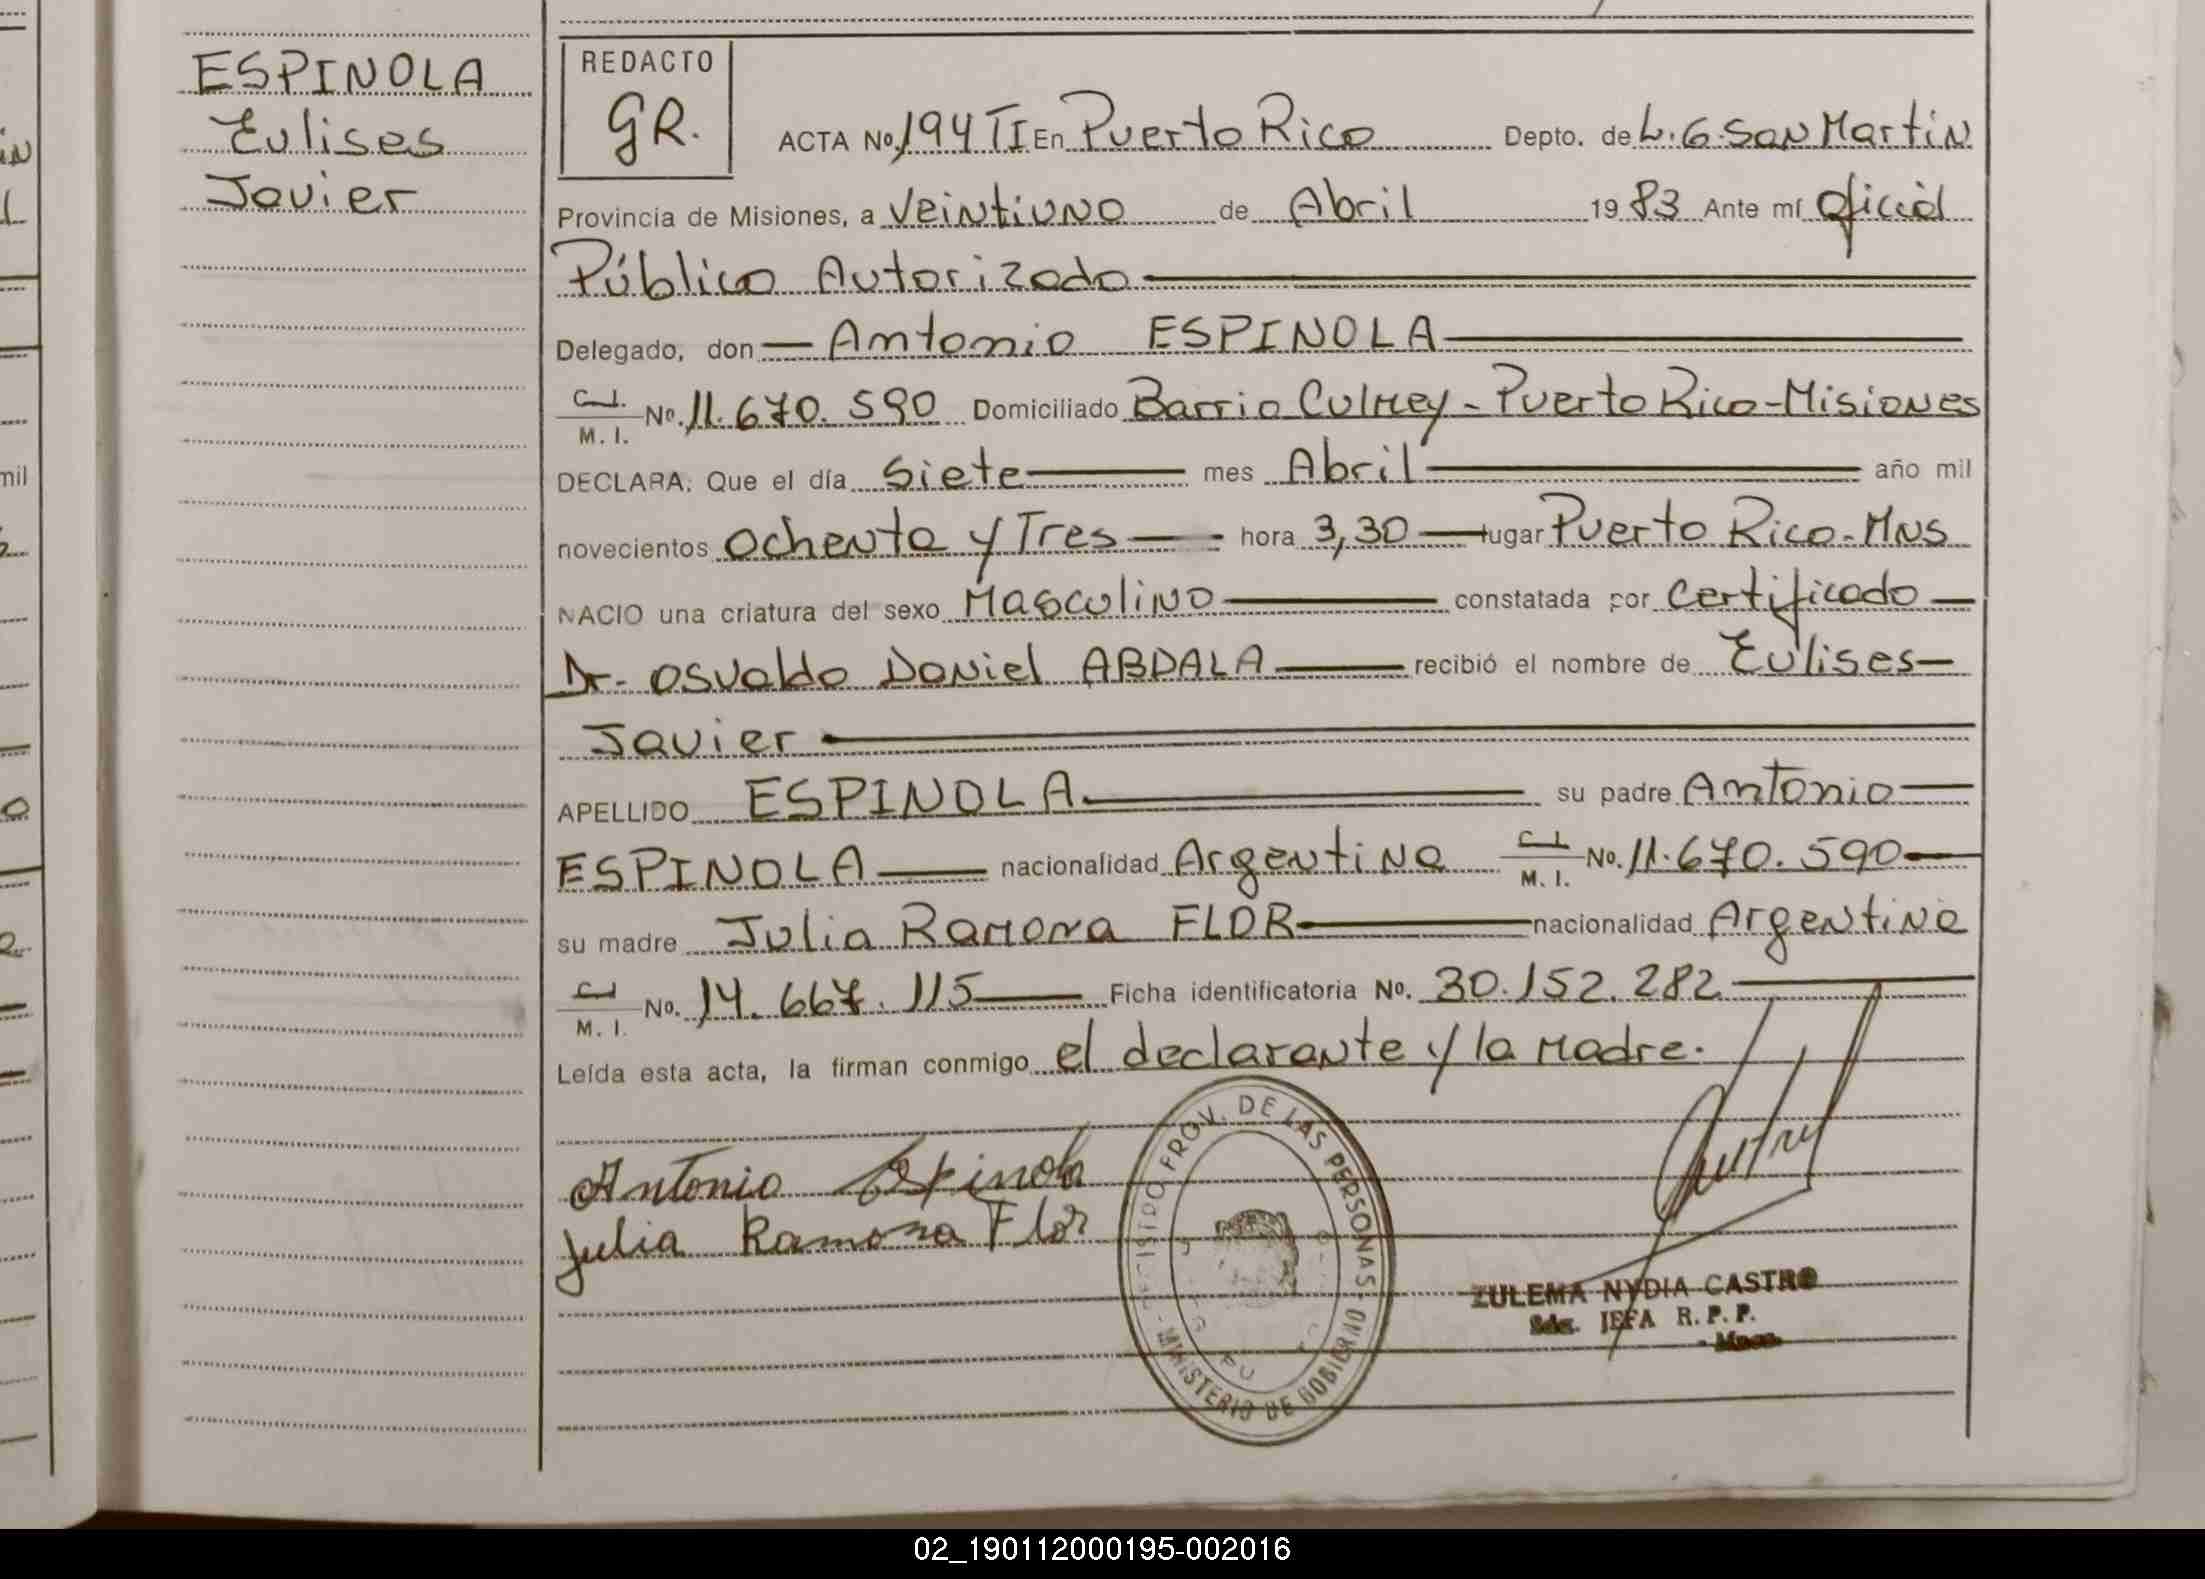 ESPINOLA
Eulises
Javier
REDACTO
GR.
ACTA No. 194 TI En Puerto Rico Depto. de L. G. San Martin
Provincia de Misiones, a Veintiuno de Abril 19 83 Ante mí Oficial
Público Autorizado
Delegado, don Antonio ESPINOLA
C.I.
M. I. No. 11.670.590 Domiciliado Barrio Culmey - Puerto Rico - Misiones
DECLARA: Que el día Siete mes Abril año mil
novecientos Ochenta y Tres hora 3,30 lugar Puerto Rico - Mns
NACIO una criatura del sexo Masculino constatada por Certificado
Dr. Osvaldo Daniel ABDALA recibió el nombre de Eulises
Javier
APELLIDO ESPINOLA su padre Antonio
ESPINOLA nacionalidad Argentina C.I. M. I. No. 11.670.590
su madre Julia Ramona FLOR nacionalidad Argentina
C.I.
M. I. No. 14.667.115 Ficha identificatoria No. 30.152.282
Leída esta acta, la firman conmigo el declarante y la Madre.
Antonio Espinola
Julia Ramona Flor
REGISTRO PROV. DE LAS PERSONAS
MINISTERIO DE GOBIERNO
ZULEMA NYDIA CASTRO
JEFA R. P. P.
02_190112000195-002016